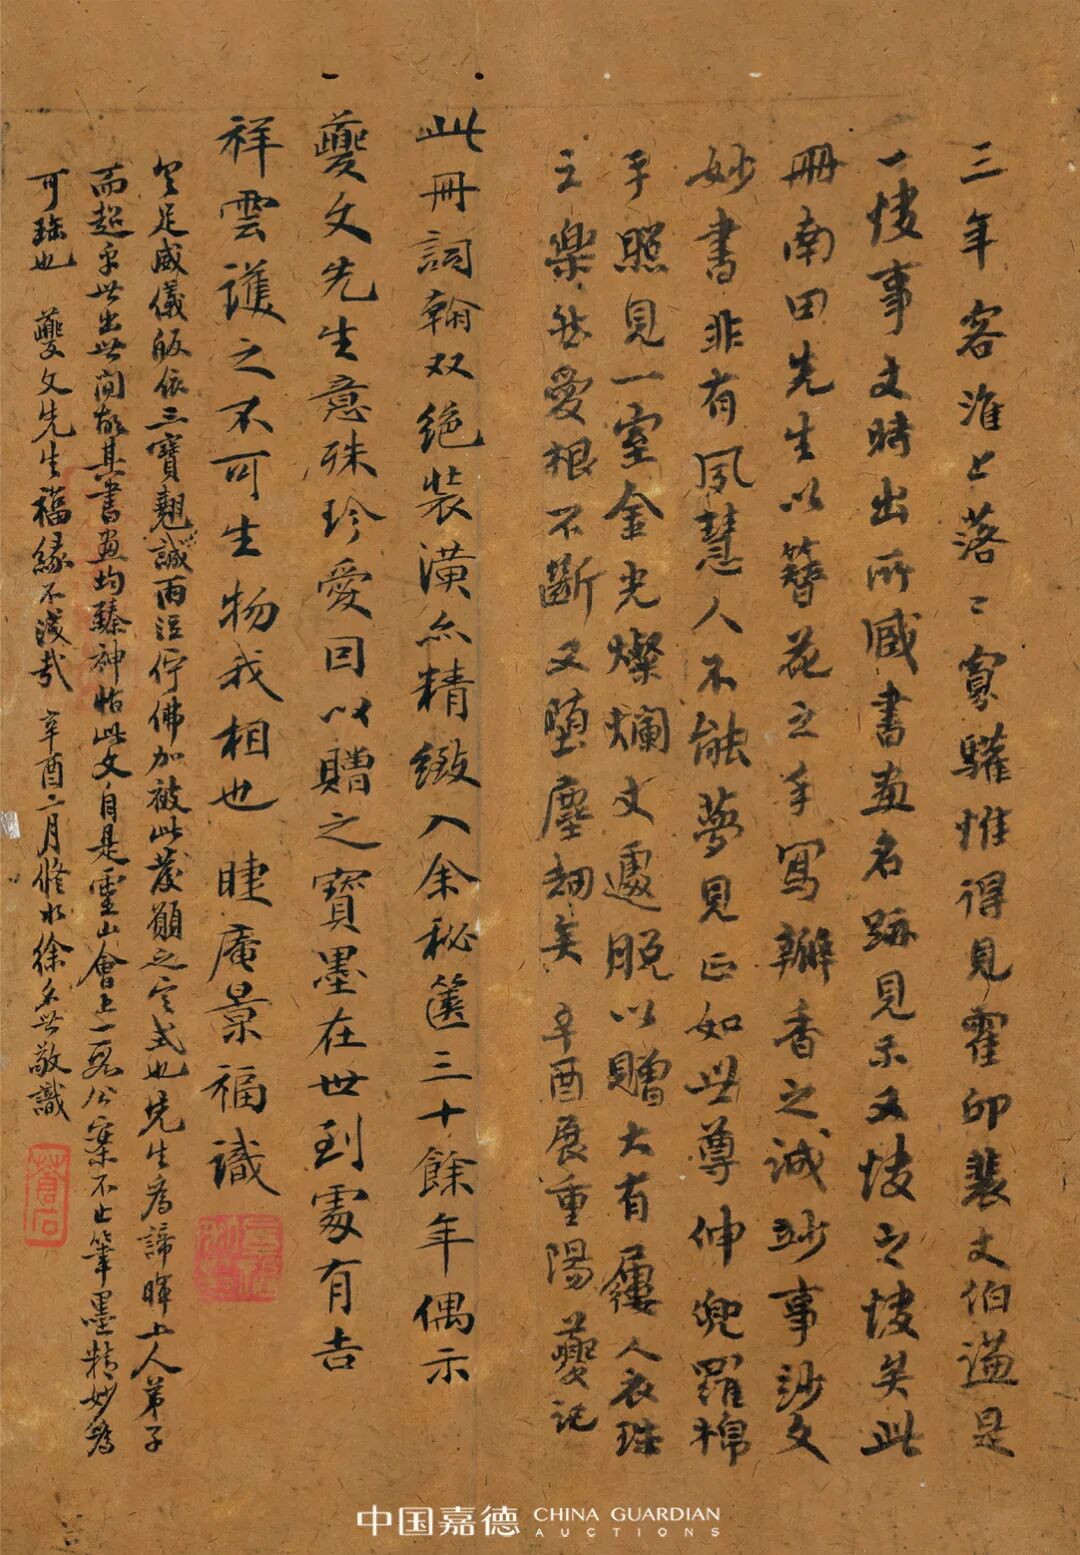 三年客淮上落〻寡驩惟得見霍邱裴丈伯謙是
一快事丈時出所臧書畫名跡見示又快之快矣此
冊南田先生以簪花之手寫瓣香之誠妙事妙文
妙書非有夙慧人不能夢見正如世尊伸兜羅棉
手照見一室金光燦爛丈遽脱以贈大有屨人衣珠
之樂然愛根不斷又墮塵劫矣 辛酉展重陽夔記
此冊詞翰双绝裝潢亦精緻入余秘篋三十餘年偶示
夔文先生意殊珍愛因以贈之寳墨在世到處有吉
祥雲護之不可生物我相也 睫庵景福識
具足威儀皈依三寶翹誠雨泣佇佛加被此發願之定式也先生為諦暉上人弟子
而超乎世出世間故其書畫均臻神怡此文自是靈山會上一段公案不止筆墨精妙為
可珍也 夔文先生福緣不淺哉 辛酉二月修水徐 敬識
蒼石
中国嘉德 CHINA GUARDIAN AUCTIONS